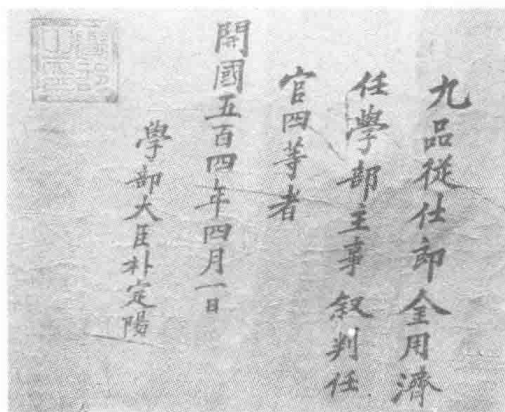 九品從仕郎金用濟
任學部主事叙判任
官四等者
開國五百四年四月一日
學部大臣朴定陽